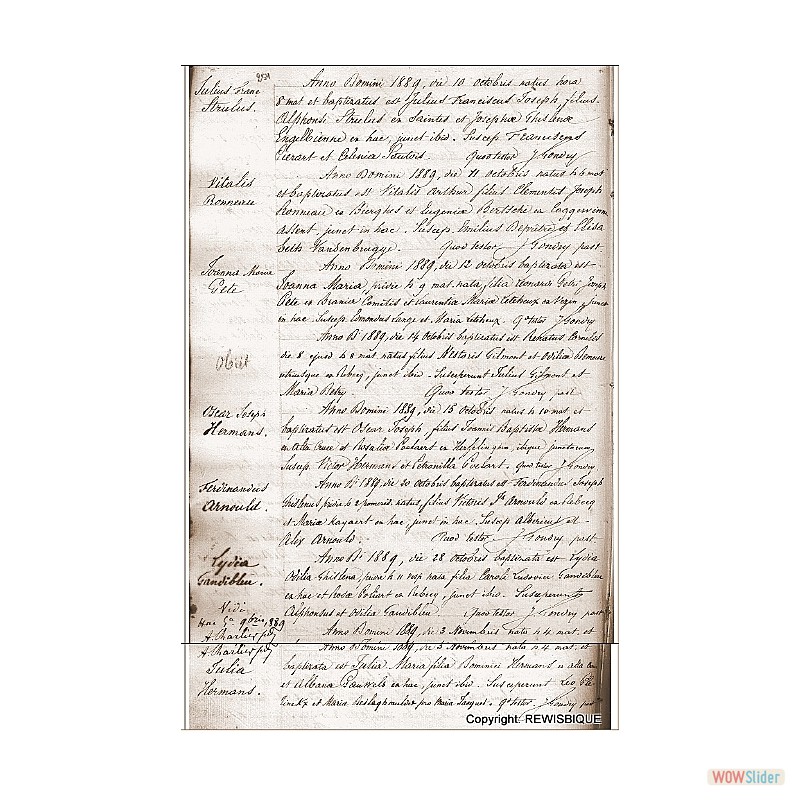 254
Julius Franc
Strulus.
Anno Domini 1889, die 10 octobris natus hora
8 mat et baptizatus est Julius Franciscus Joseph, filius
Alphonsi Strulus ex Saintes et Josephæ Ghislenæ
Engelbienne ex hac, junct ibid. Suscep. Franciscus
et Celenia Quod testor J. Gondry
Vitalis
Ronneau
Anno Domini 1889, die 11 octobris natus h 6 mat
et baptizatus est Vitalis Arthur filius Clementis Joseph
Ronneau ex Bierghes et Eugenia ex
assent. junct in hac. Suscep. Emilius Deprêtre et Elisa
beth Vandenbrugge. Quod testor, J. Gondry past
Joanna Maria
Gete
Anno Domini 1889, die 12 octobris baptizata est
Joanna Maria, pridie h 9 mat. nata, filia Leonard Joseph
ex Comitis et Laurentia Maria junct
in hac Suscep Edmondus et Maria Qd testor J Gondry
Obiit
Anno Di 1889, die 14 octobris baptizatus est Renatus Cornelius
die 8 ejusd h 8 mat. natus filius Nestoris Gilmont et Odilia
utriusque ex Rebecq, junct ibid. Susceperunt Julius Gilmont et
Maria Quod testor J Gondry past
Oscar Joseph
Hermans.
Anno Domini 1889, die 15 octobris natus h 10 mat et
baptizatus est Oscar Joseph, filius Joannis Baptistæ Hermans
ex alta Cruce et Rosalia ex
Suscep. Victor Hermans et Petronilla Quod testor J Gondry
Ferdinandus
Arnould.
Anno Di 1889, die 20 octobris baptizatus est Ferdinandus Joseph
Ghislenus, pridie h 2 pomerid. natus, filius Victoris Jh Arnould ex Rebecq
et Maria ex hac, junct in hac. Suscep Albericus et
Alix Arnould. Quod testor J. Gondry past
Lydia
Gandibleu.
Anno Di 1889, die 28 octobris baptizata est Lydia
Odilia Ghislena, pridie h 11 vesp nata filia Caroli Ludovici Gandibleu
ex hac et Rosæ ex Rebecq, junct ibid. Susceperunt
Alphonsus et Odilia Gandibleu Quod testor J. Gondry past
Vidi
hac 5a 9bris 1889
A. Charlier
Anno Domini 1889, die 3 Novembris nata h 4 mat. et
A. Charlier
Julia
Hermans.
Anno Domini 1889, die 3 Novembris nata h 4 mat. et
baptizata est Julia Maria filia Dominici Hermans ex alta
et Albana ex hac, junct ibid. Susceperunt Leo
et Maria pro Maria Jacquet. Qd testor. J. Gondry past
Copyright: REWISBIQUE
WOWSlider